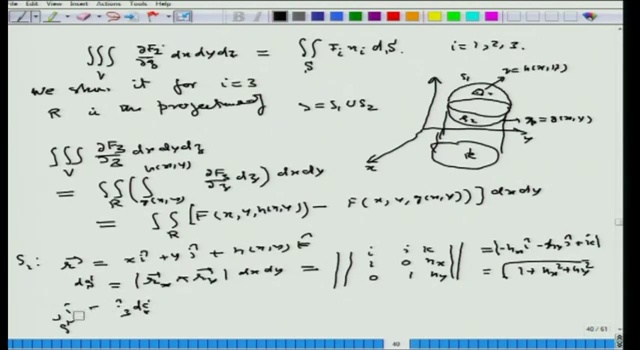 File Edit View Insert Actions Tools Help
∭_V ∂F_i/∂z dx dy dz = ∬_S F_i n_i dS. i = 1, 2, 3.
We show it for i = 3
R is the projection of S = S₁ ∪ S₂
S₁ z = h(x, y)
S₂ z = g(x, y)
R x y
∭_V ∂F₃/∂z dx dy dz
= ∬_R ( ∫_{g(x,y)}^{h(x,y)} ∂F₃/∂z dz ) dx dy
= ∬_R [ F(x, y, h(x,y)) − F(x, y, g(x,y)) ] dx dy
S₁: r⃗ = x î + y ĵ + h(x,y) k̂
dS = | r⃗_x × r⃗_y | dx dy = || i j k ; 1 0 h_x ; 0 1 h_y || = |−h_x î − h_y ĵ + k̂|
= √(1 + h_x² + h_y²)
40 / 61
40